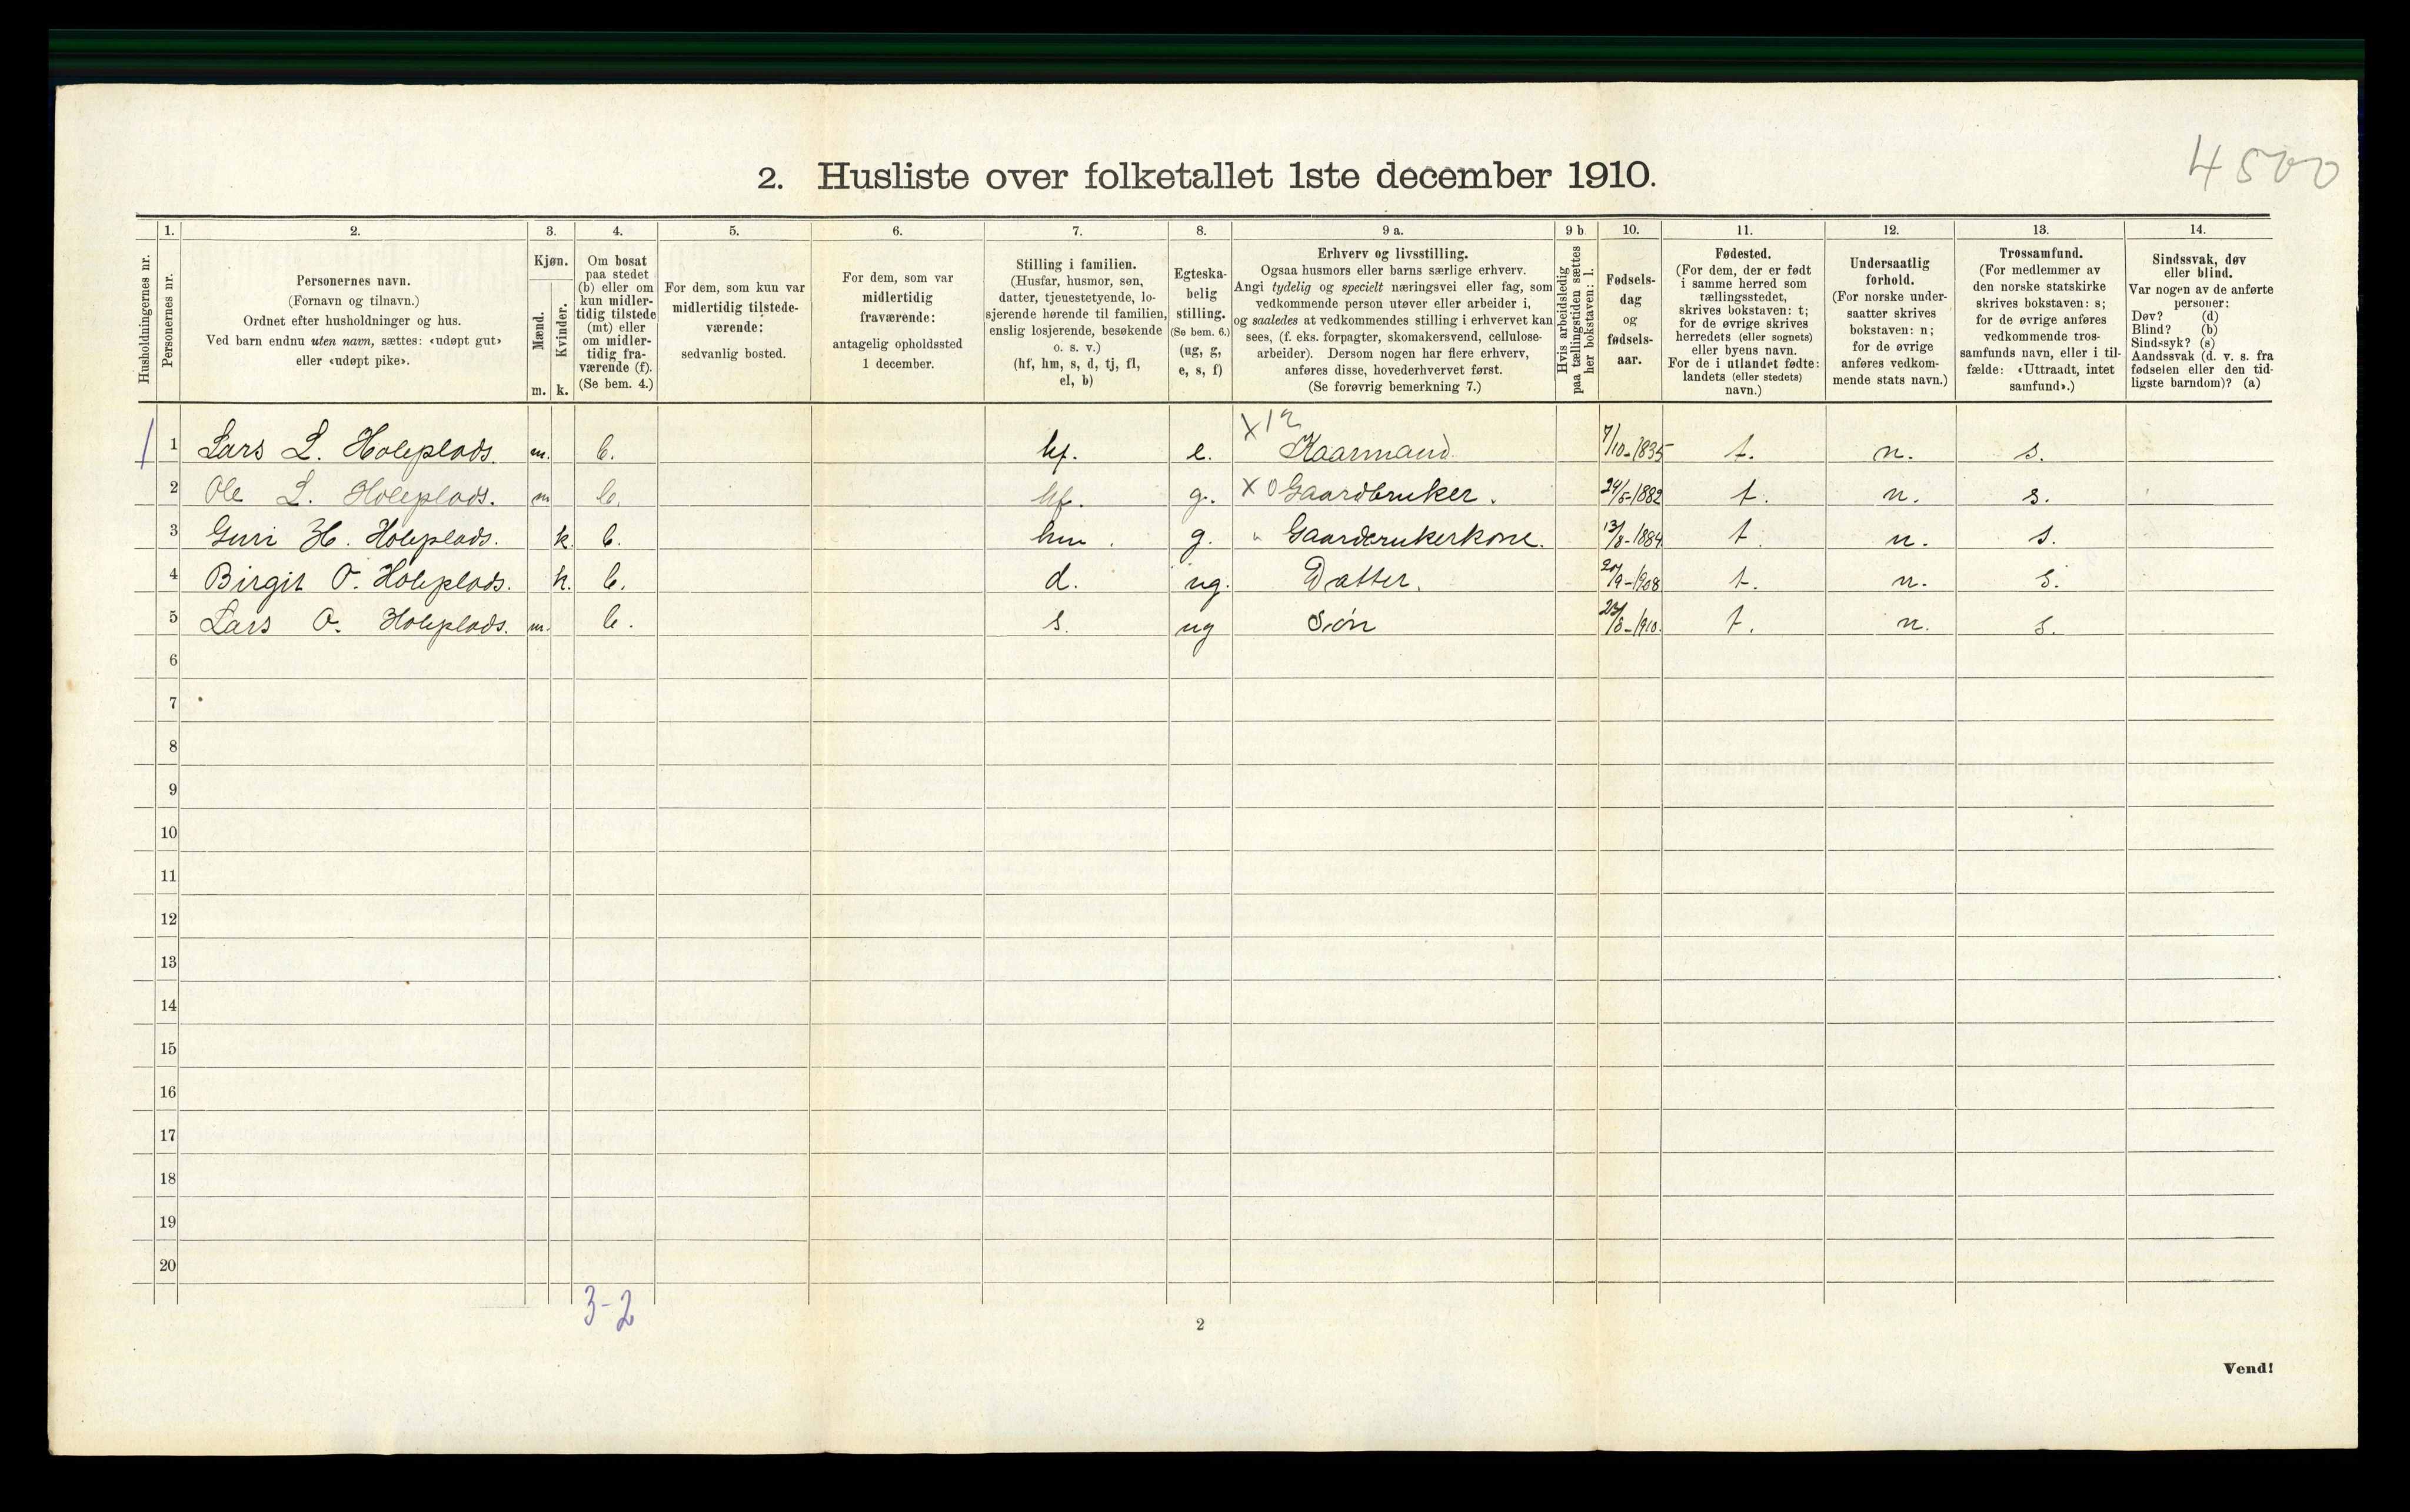 4500
2. Husliste over folketallet 1ste december 1910.
Husholdningernes nr.
1.
Personernes nr.
2.
Personernes navn.
(Fornavn og tilnavn.)
Ordnet efter husholdninger og hus.
Ved barn endnu uten navn, sættes: «udøpt gut»
eller «udøpt pike».
3.
Kjøn.
Mænd.
m.
Kvinder.
k.
4.
Om bosat
paa stedet
(b) eller om
kun midler-
tidig tilstede
(mt) eller
om midler-
tidig fra-
værende (f).
(Se bem. 4.)
5.
For dem, som kun var
midlertidig tilstede-
værende:
sedvanlig bosted.
6.
For dem, som var
midlertidig
fraværende:
antagelig opholdssted
1 december.
7.
Stilling i familien.
(Husfar, husmor, søn,
datter, tjenestetyende, lo-
sjerende hørende til familien,
enslig losjerende, besøkende
o. s. v.)
(hf, hm, s, d, tj, fl,
el, b)
8.
Egteska-
belig
stilling.
(Se bem. 6.)
(ug, g,
e, s, f)
9 a.
Erhverv og livsstilling.
Ogsaa husmors eller barns særlige erhverv.
Angi tydelig og specielt næringsvei eller fag, som
vedkommende person utøver eller arbeider i,
og saaledes at vedkommendes stilling i erhvervet kan
sees, (f. eks. forpagter, skomakersvend, cellulose-
arbeider). Dersom nogen har flere erhverv,
anføres disse, hovederhvervet først.
(Se forøvrig bemerkning 7.)
9 b
Hvis arbeidsledig
paa tællingstiden sættes
her bokstaven: l.
10.
Fødsels-
dag
og
fødsels-
aar.
11.
Fødested.
(For dem, der er født
i samme herred som
tællingsstedet,
skrives bokstaven: t;
for de øvrige skrives
herredets (eller sognets)
eller byens navn.
For de i utlandet fødte:
landets (eller stedets)
navn.)
12.
Undersaatlig
forhold.
(For norske under-
saatter skrives
bokstaven: n;
for de øvrige
anføres vedkom-
mende stats navn.)
13.
Trossamfund.
(For medlemmer av
den norske statskirke
skrives bokstaven: s;
for de øvrige anføres
vedkommende tros-
samfunds navn, eller i til-
fælde: «Uttraadt, intet
samfund».)
14.
Sindssvak, døv
eller blind.
Var nogen av de anførte
personer:
Døv? (d)
Blind? (b)
Sindssyk? (s)
Aandssvak (d. v. s. fra
fødselen eller den tid-
ligste barndom)? (a)
X12
1 Lars L. Holeplads. m. b. hf. e. Kaarmand. 7/10-1835 t. n. s.
2 Ole L. Holeplads. m b. hf. g. X0 Gaardbruker. 24/5-1882 t. n. s.
3 Guri H. Holeplads. k. b. hm. g. " Gaardrukerkone. 13/8-1884 t. n. s.
4 Birgit O. Holeplads. k. b. d. ug. Datter. 20/9-1908 t. n. s.
5 Lars O. Holeplads. m. b. s. ug Søn 23/8-1910. t. n. s.
6
7
8
9
10
11
12
13
14
15
16
17
18
19
20
3-2
2
Vend!